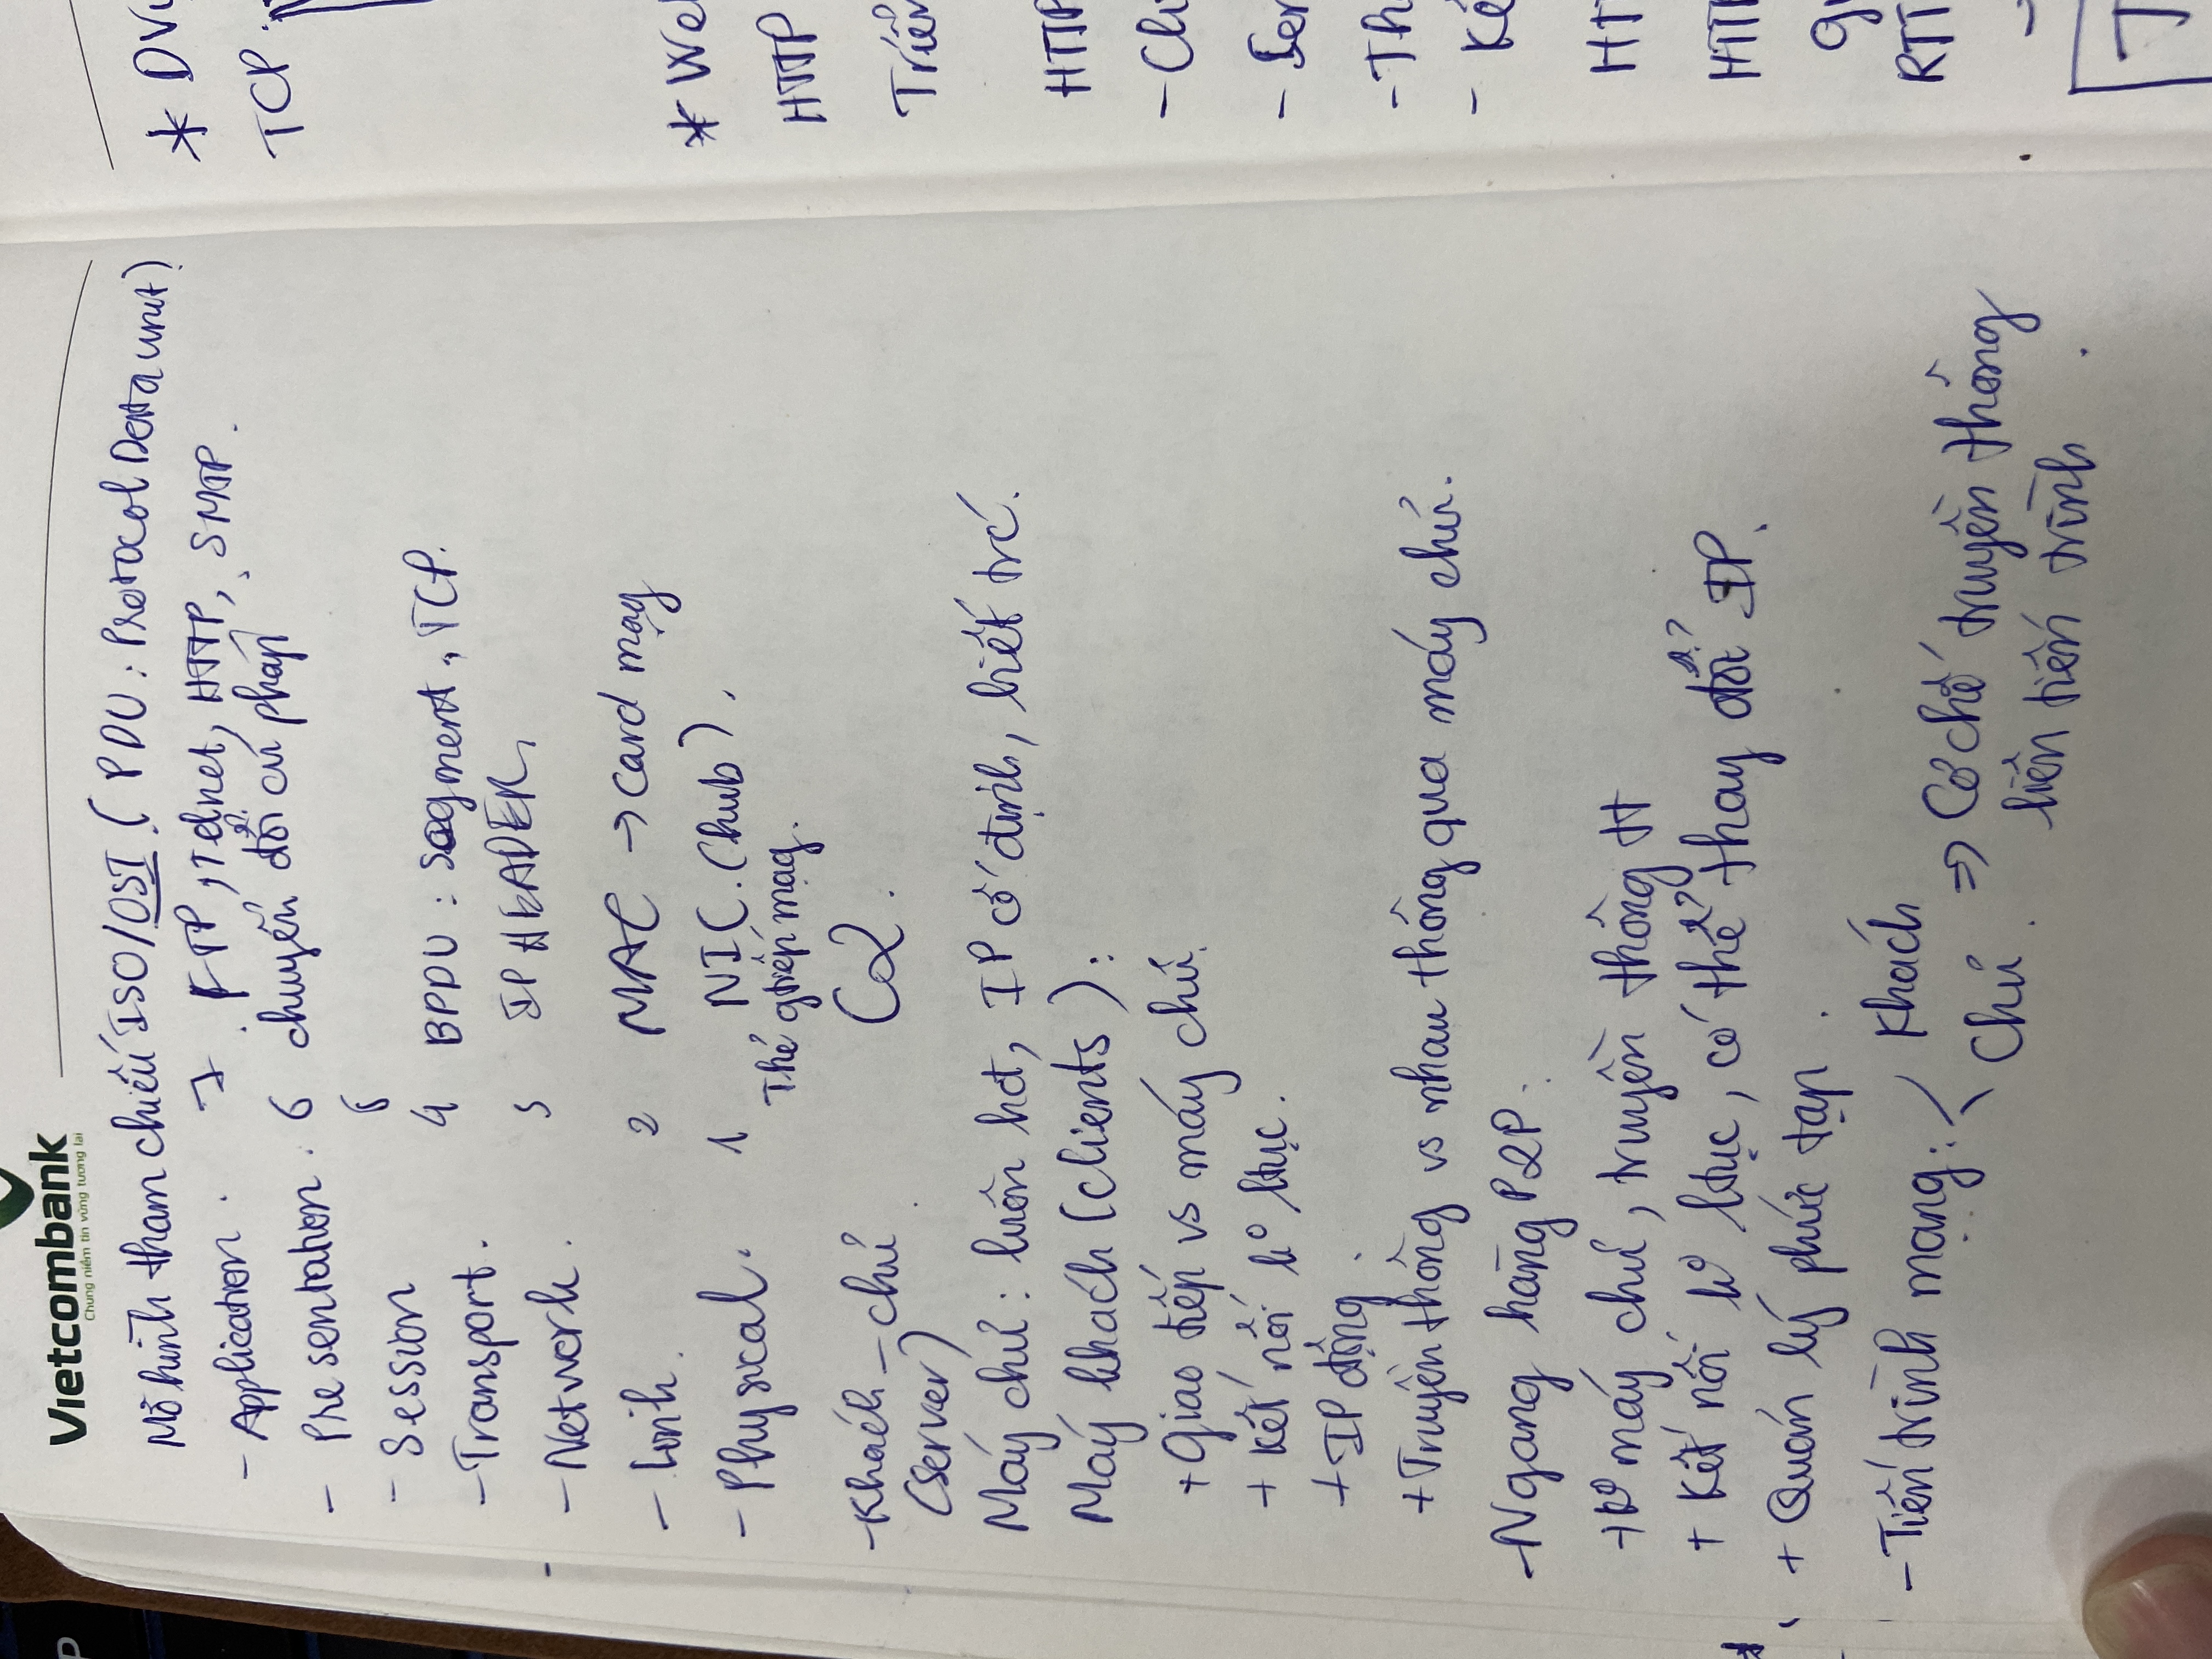 P
Vietcombank
Chung niềm tin vững tương lai
Mô hình tham chiếu ISO/OSI (PDU: Protocol Data unit)
- Application. 7 FTP, Telnet, HTTP, SMTP.
- Presentation. 6 chuyển đổi cú pháp
- Session 5
- Transport. 4 BPDU: Segment, TCP.
- Network. 3 IP HEADER,
- Link. 2 MAC → Card mạg
- Physical. 1 NIC. (hub),
Thẻ gtiếp mạg.
- Khách - chủ C2.
(Server)
Máy chủ: luôn hđ, IP cố định, biết trc.
Máy khách (clients):
+ Giao tiếp vs máy chủ.
+ Kết nối k° ltục.
+ IP động.
+ Truyền thông vs nhau thông qua máy chủ.
- Ngang hàng P2P:
+ k° máy chủ, truyền thông tt
+ Kết nối k° ltục, có thể thay đổi IP.
+ Quản lý phức tạp.
- Tiến trình mạng: Khách
Chủ. => Cơ chế truyền thông
liên tiến trình.
* DV
TCP.
* We
HTTP
Triển
HTTP
- Cli
- Ser
- Th
- Kế
HT
HTTP
RTT